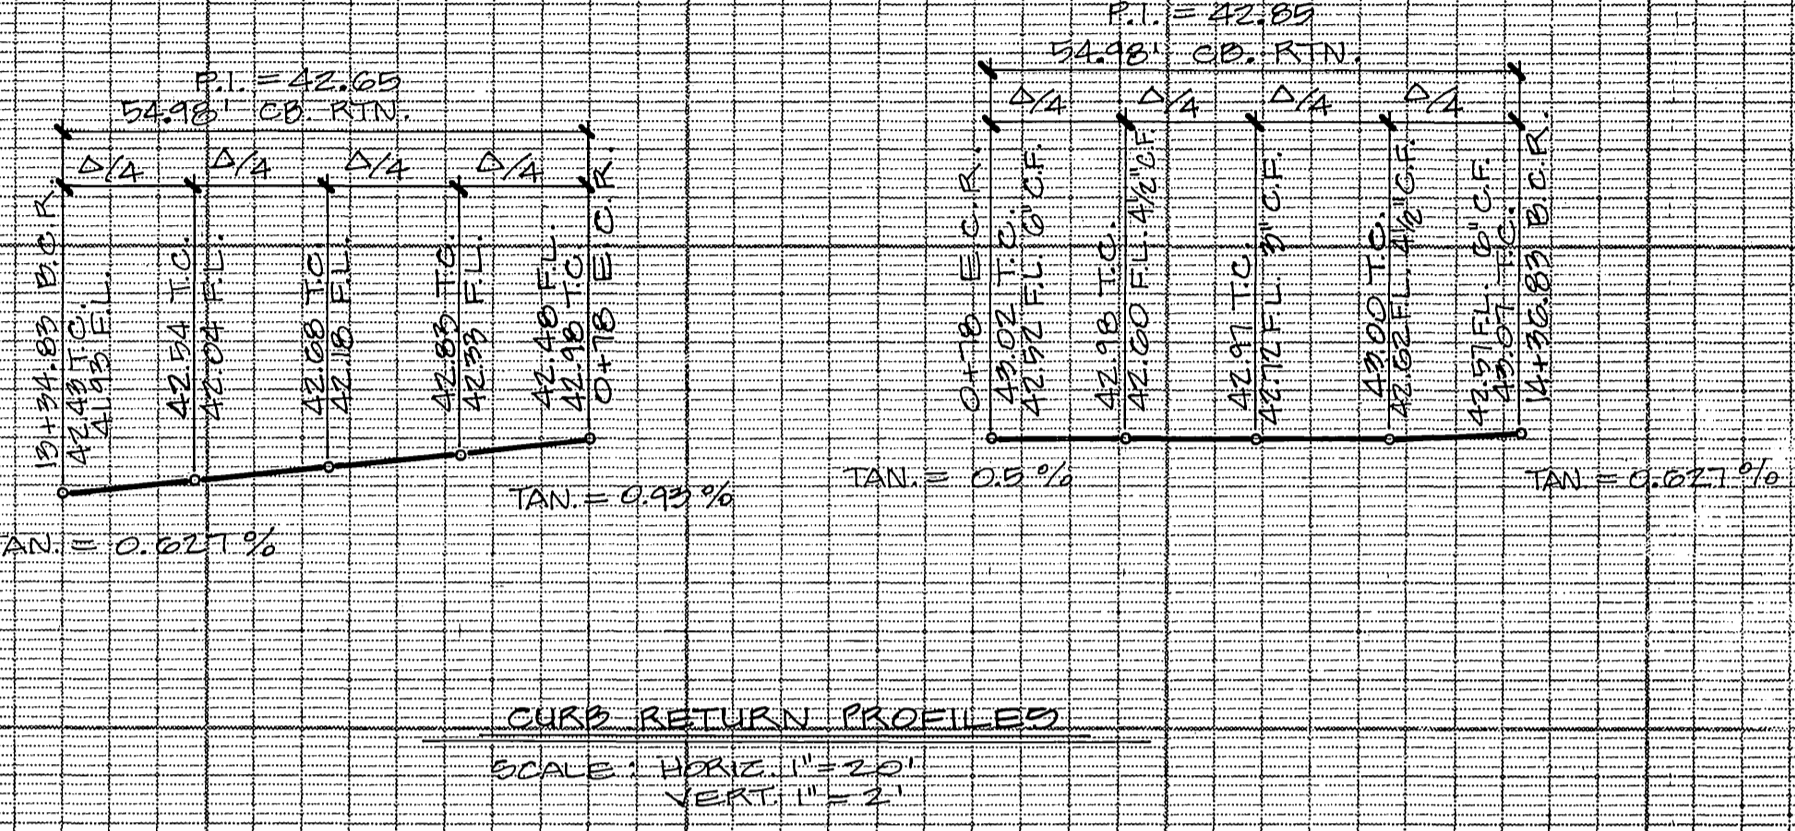 P.I. = 42.65
54.98' CB. RTN.
Δ/4 Δ/4 Δ/4 Δ/4
13+34.83 B.C.R.
42.43 T.C.
41.93 F.L.
42.54 T.C.
42.04 F.L.
42.68 T.C.
42.18 F.L.
42.83 T.C.
42.33 F.L.
42.48 F.L.
42.98 T.C.
0+78 E.C.R.
AN. = 0.627 %
TAN. = 0.93 %
P.I. = 42.85
54.98' CB. RTN.
Δ/4 Δ/4 Δ/4 Δ/4
0+78 E.C.R.
43.02 T.C.
42.52 F.L. 6" C.F.
42.98 T.C.
42.60 F.L. 4 1/2" C.F.
42.97 T.C.
42.72 F.L. 3" C.F.
43.00 T.C.
42.62 F.L. 4 1/2" C.F.
42.57 F.L. 6" C.F.
43.07 T.C.
14+36.83 B.C.R.
TAN. = 0.5 %
TAN. = 0.627 %
CURB RETURN PROFILES
SCALE : HORIZ. 1" = 20'
VERT. 1" = 2'